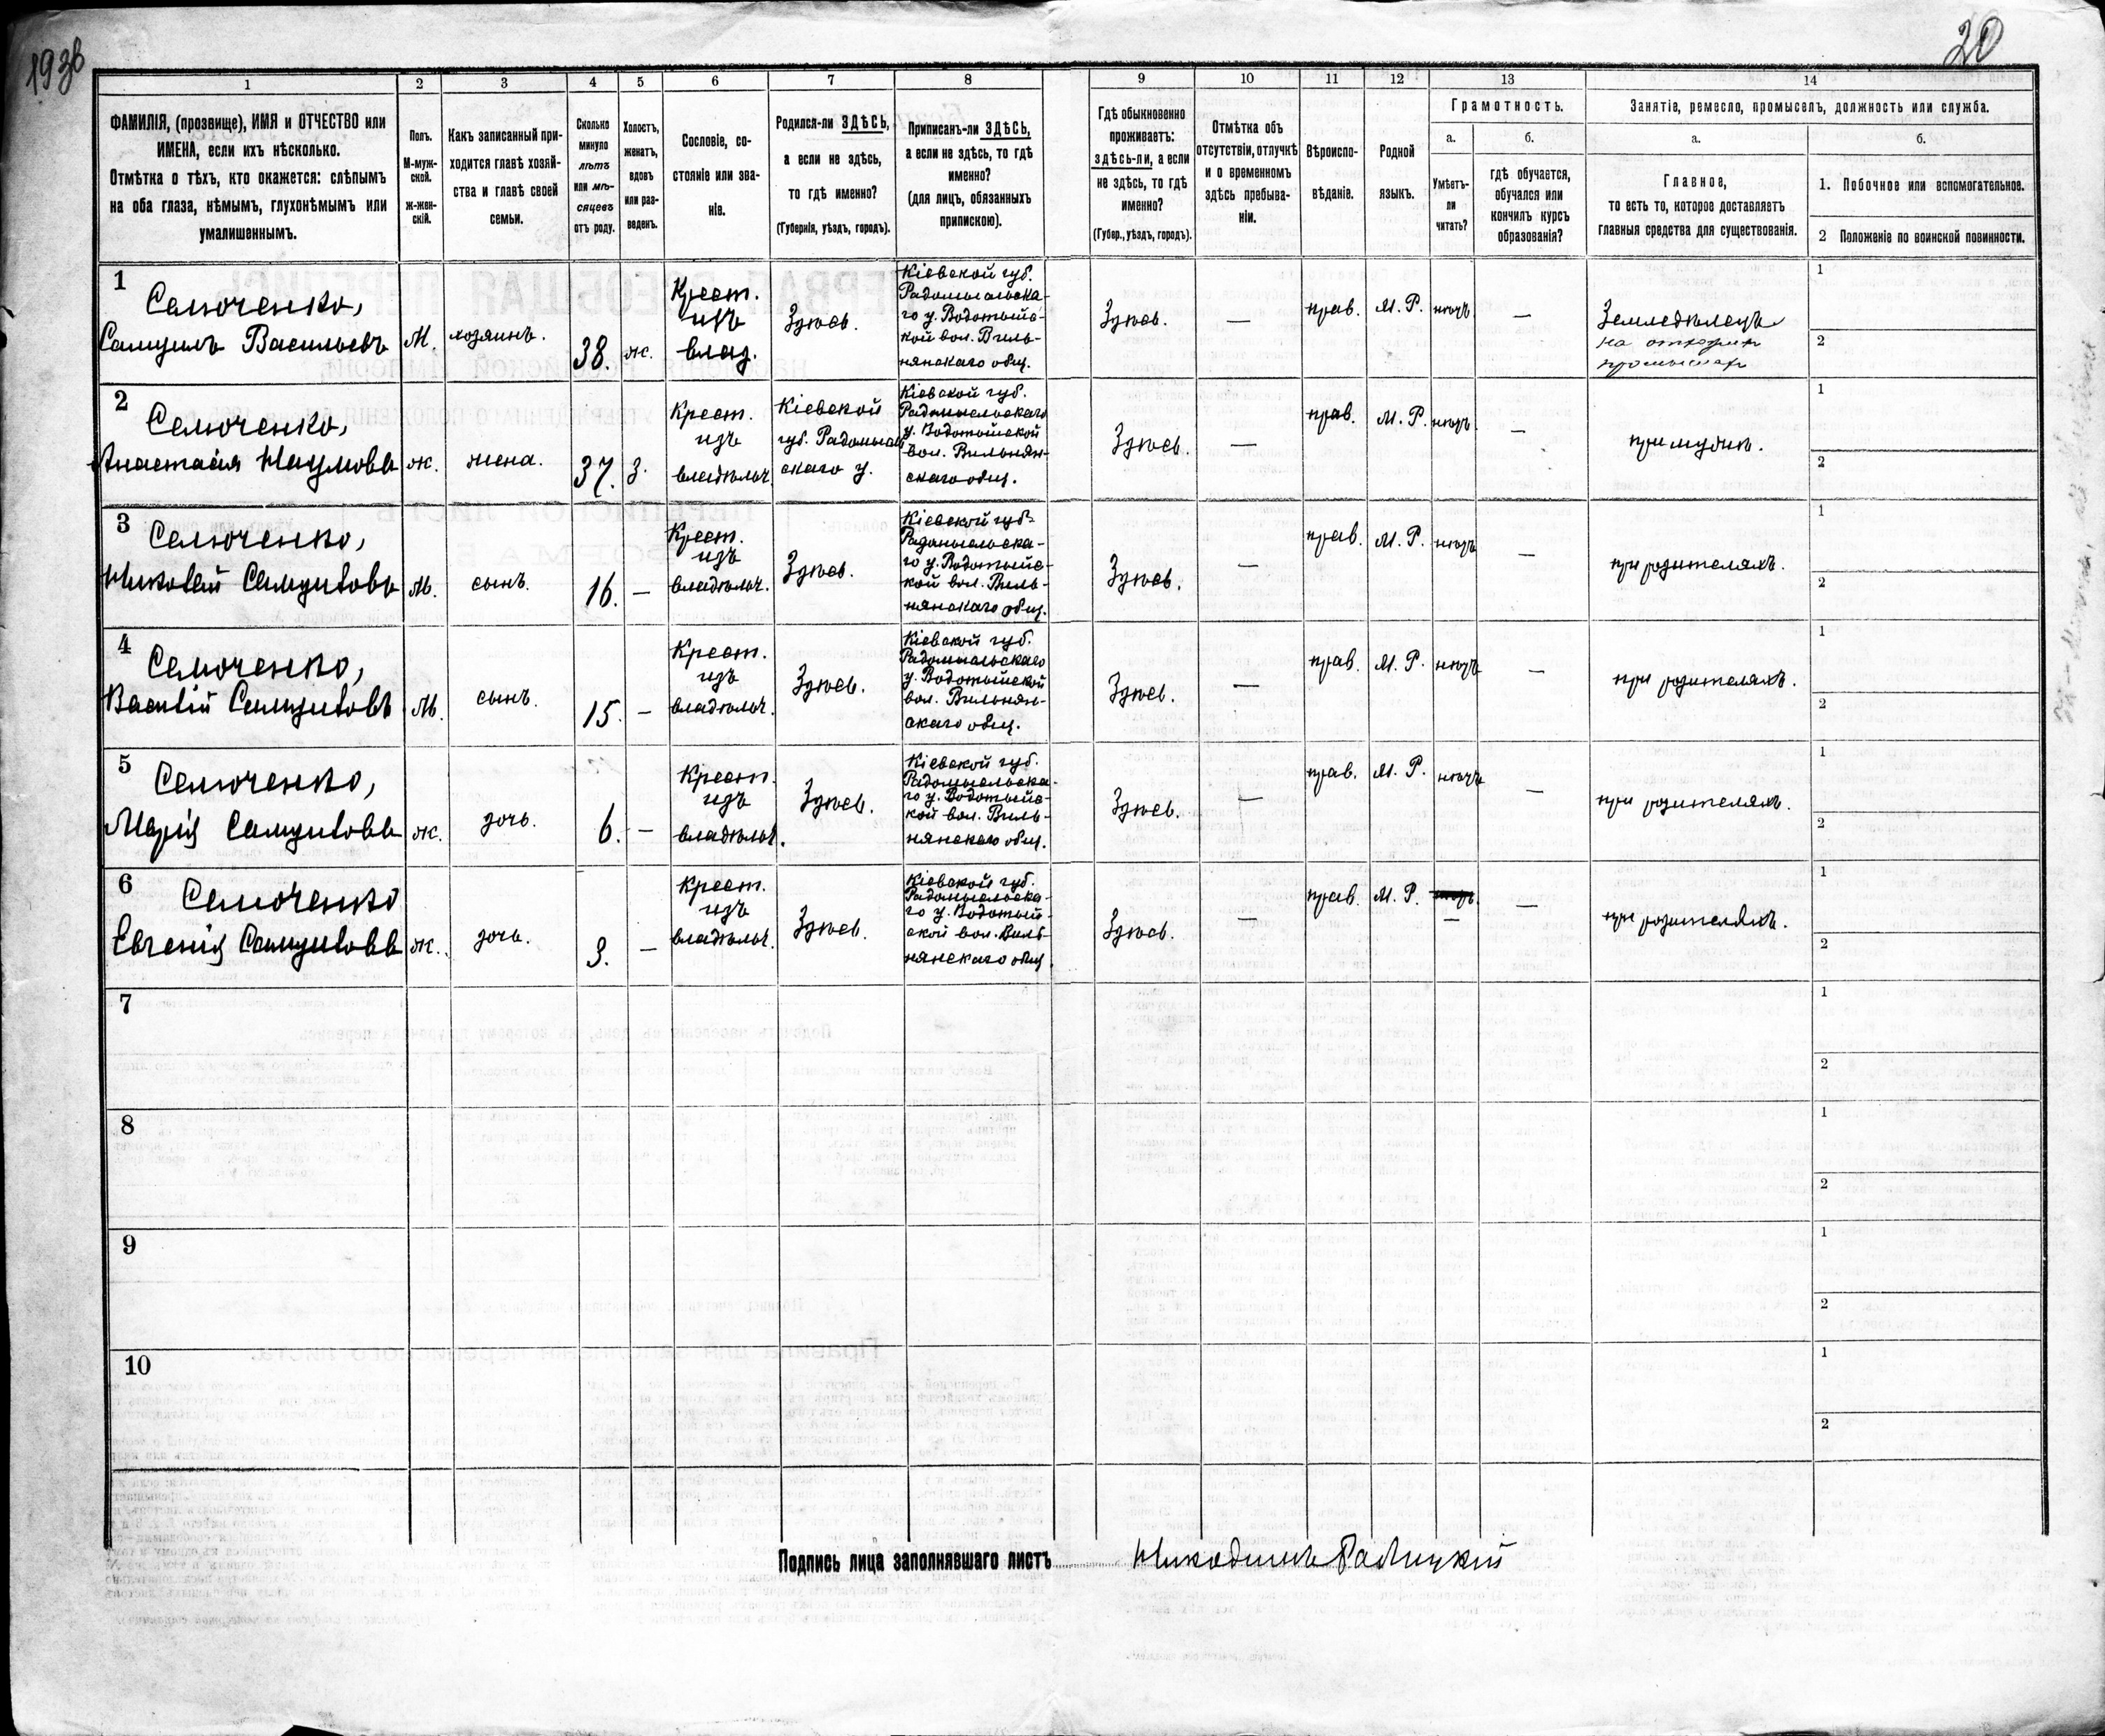 193в
20
1
2
3
4
5
6
7
8
9
10
11
12
13
14
ФАМИЛІЯ, (прозвище), ИМЯ и ОТЧЕСТВО или
ИМЕНА, если ихъ нѣсколько.
Отмѣтка о тѣхъ, кто окажется: слѣпымъ
на оба глаза, нѣмымъ, глухонѣмымъ или
умалишеннымъ.
Полъ.
М-муж-
ской.
ж-жен-
скій.
Какъ записанный при-
ходится главѣ хозяй-
ства и главѣ своей
семьи.
Сколько
минуло
лѣтъ
или мѣ-
сяцевъ
отъ роду.
Холостъ,
женатъ,
вдовъ
или раз-
веденъ.
Сословіе, со-
стояніе или зва-
ніе.
Родился-ли ЗДѢСЬ,
а если не здѣсь,
то гдѣ именно?
(Губернія, уѣздъ, городъ).
Приписанъ-ли ЗДѢСЬ,
а если не здѣсь, то гдѣ
именно?
(для лицъ, обязанныхъ
припискою).
Гдѣ обыкновенно
проживаетъ:
здѣсь-ли, а если
не здѣсь, то гдѣ
именно?
(Губер., уѣздъ, городъ).
Отмѣтка объ
отсутствіи, отлучкѣ
и о временномъ
здѣсь пребыва-
ніи.
Вѣроиспо-
вѣданіе.
Родной
языкъ.
Грамотность.
а.
Умѣетъ-
ли
читать?
б.
гдѣ обучается,
обучался или
кончилъ курсъ
образованія?
Занятіе, ремесло, промыселъ, должность или служба.
а.
Главное,
то есть то, которое доставляетъ
главныя средства для существованія.
б.
1. Побочное или вспомогательное.
2 Положеніе по воинской повинности.
1
Семюченко,
Самуилъ Васильевъ
М.
хозяинъ.
38.
ж.
Крест.
изъ
влад.
Здѣсь.
Кіевской губ.
Радомысльска-
го у. Водотыйс-
кой вол. Виль-
нянскаго общ.
Здѣсь.
—
прав.
М. Р.
нѣтъ
—
Земледѣлецъ
на отхожих
промыслах
1
2
2
Семюченко,
Анастасія Наумова
ж.
жена.
37.
з.
Крест.
изъ
владѣльч.
Кіевской
губ. Радомысль
скаго у.
Кіевской губ.
Радомысльскаго
у. Водотыйской
вол. Вильнян-
скаго общ.
Здѣсь.
—
прав.
М. Р.
нѣтъ
—
при мужѣ.
1
2
3
Семюченко,
Николай Самуиловъ
М.
сынъ.
16.
—
Крест.
изъ
владѣльч.
Здѣсь.
Кіевской губ.
Радомысльска-
го у. Водотыйс-
кой вол. Виль-
нянскаго общ.
Здѣсь.
—
прав.
М. Р.
нѣтъ
—
при родителяхъ.
1
2
4
Семюченко,
Василій Самуиловъ
М.
сынъ.
15.
—
Крест.
изъ
владѣльч.
Здѣсь.
Кіевской губ.
Радомысльскаго
у. Водотыйской
вол. Вильнян-
скаго общ.
Здѣсь.
—
прав.
М. Р.
нѣтъ
—
при родителяхъ.
1
2
5
Семюченко,
Марія Самуилова
ж.
дочь.
6.
—
Крест.
изъ
владѣльч.
Здѣсь.
Кіевской губ.
Радомысльска-
го у. Водотыйс-
кой вол. Виль-
нянскаго общ.
Здѣсь.
—
прав.
М. Р.
нѣтъ
—
при родителяхъ.
1
2
6
Семюченко
Евгенія Самуилова
ж.
дочь.
3.
—
Крест.
изъ
владѣльч.
Здѣсь.
Кіевской губ.
Радомысльска-
го у. Водотый-
ской вол. Виль-
нянскаго общ.
Здѣсь.
—
прав.
М. Р.
—
—
при родителяхъ.
1
2
7
1
2
8
1
2
9
1
2
10
1
2
Подпись лица заполнявшаго листъ
Никодимъ